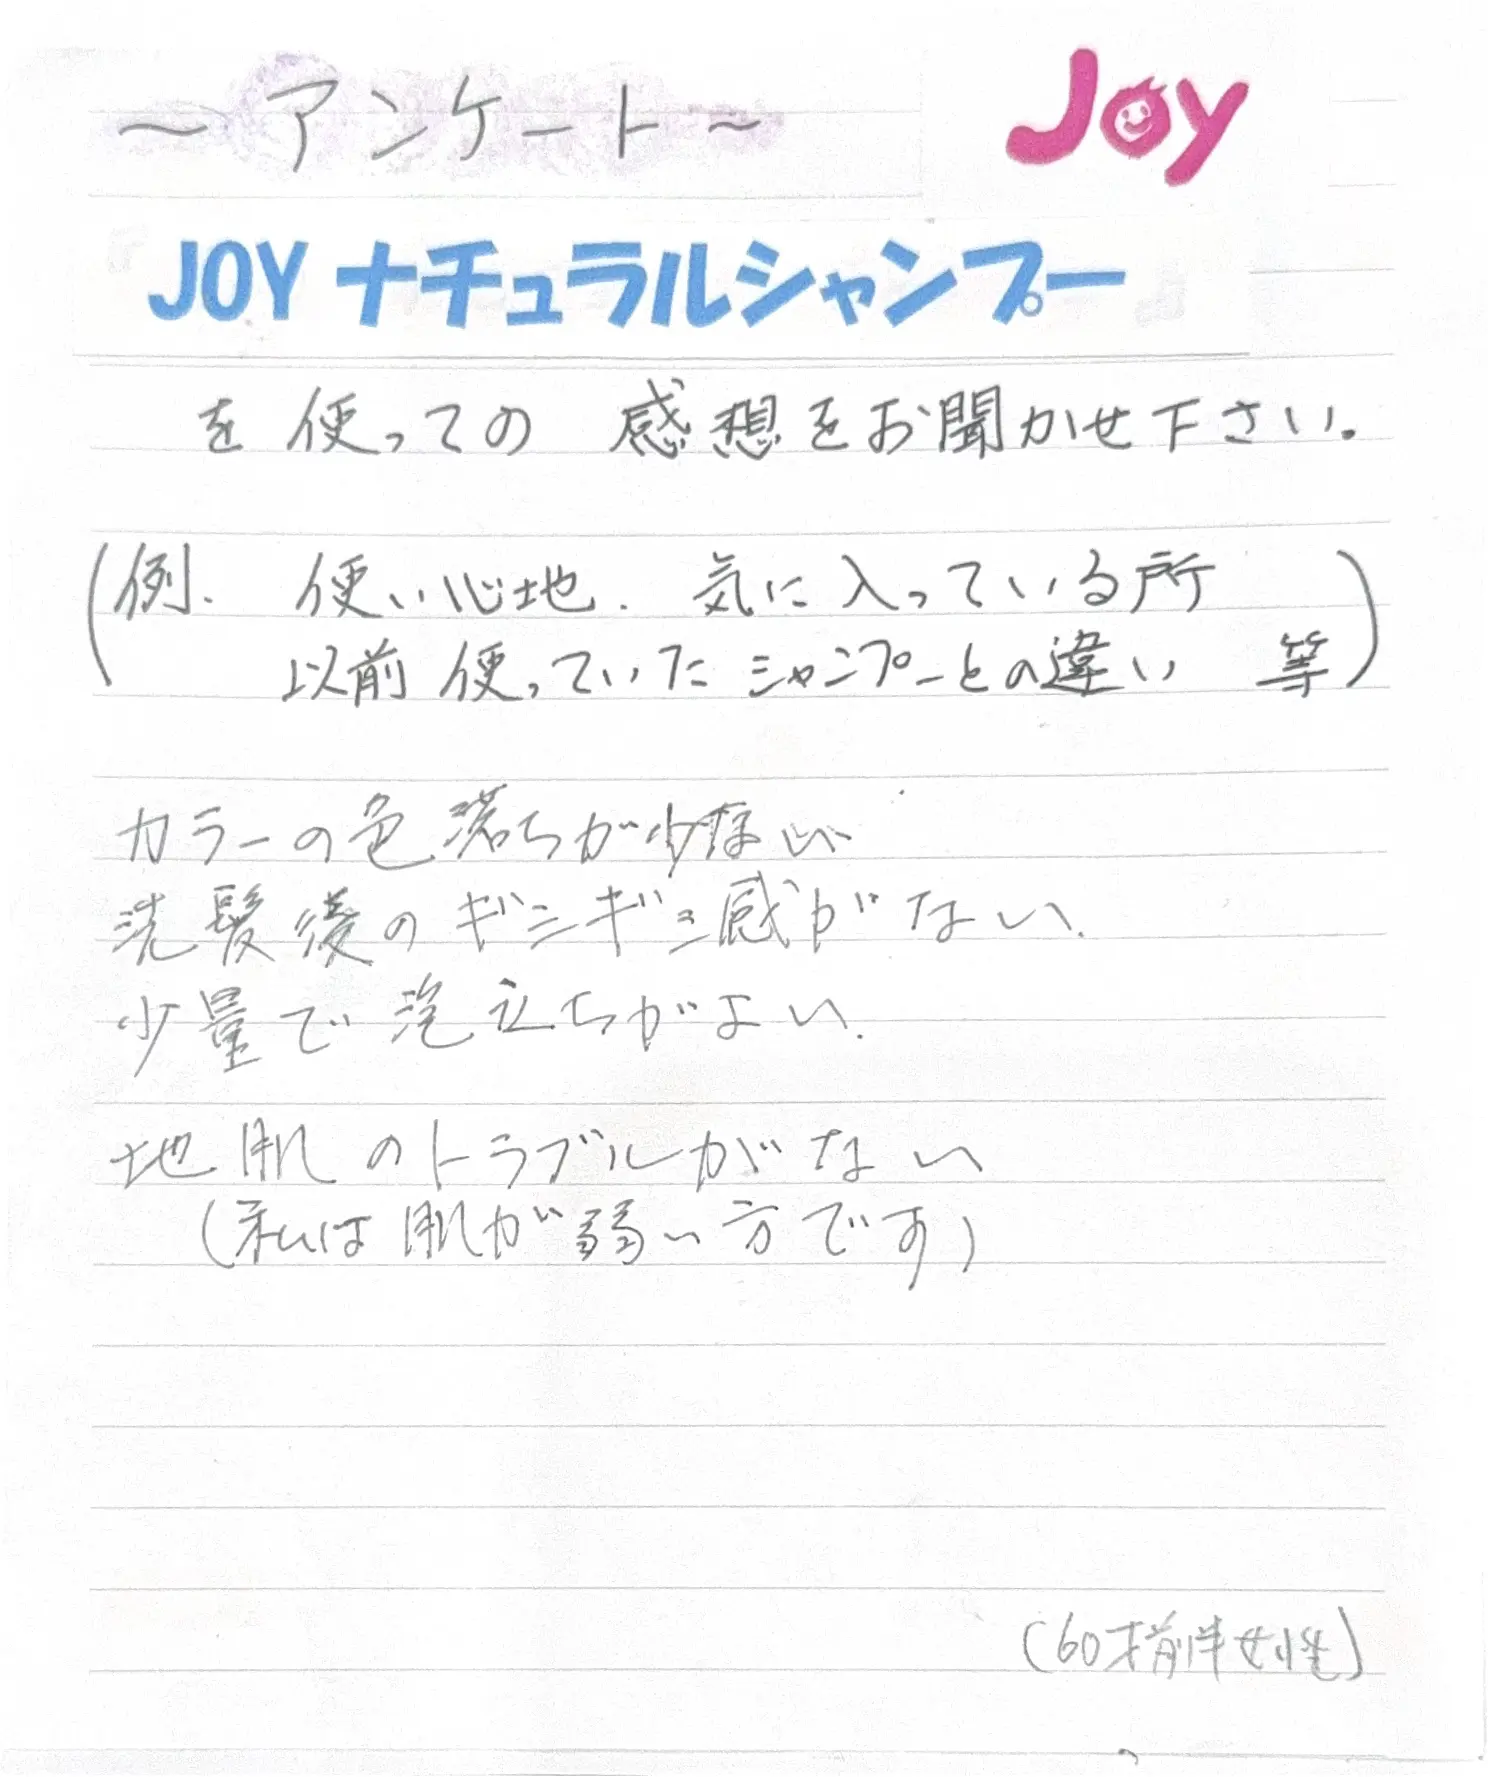 ～アンケート～
Joy
『JOYナチュラルシャンプー』
を使っての感想をお聞かせ下さい。
(例. 使い心地. 気に入っている所
以前使っていたシャンプーとの違い 等)
カラーの色落ちが少ない
洗髪後のギシギシ感がない.
少量で泡立ちがよい.
地肌のトラブルがない
(私は肌が弱い方です)
(60才前半女性)